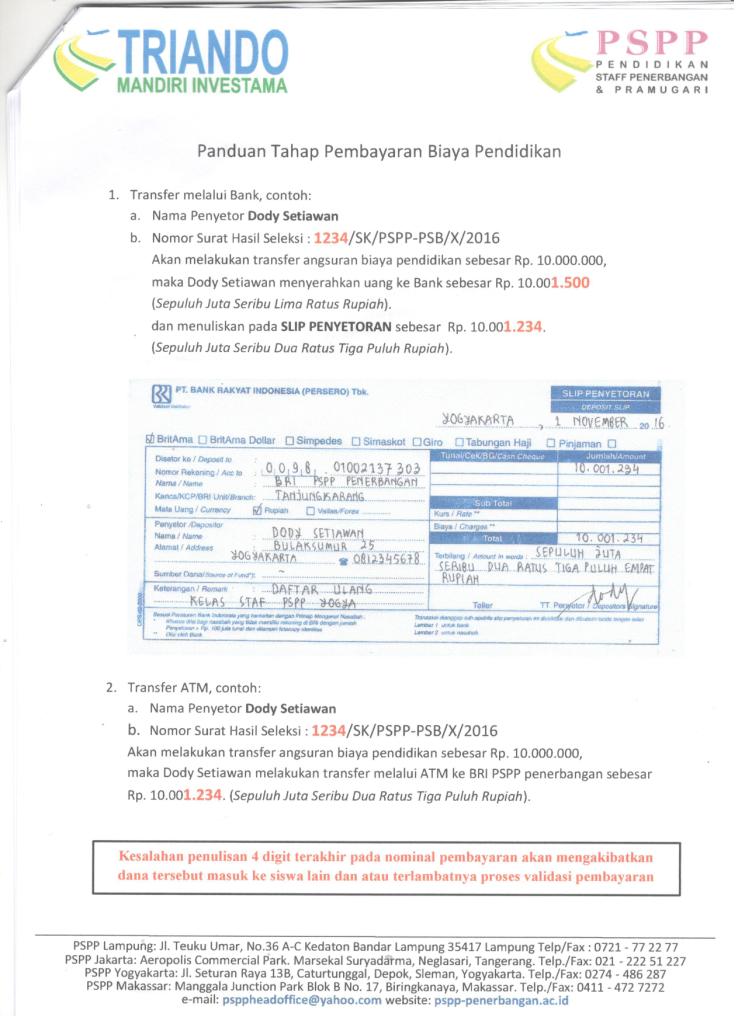 TRIANDO
MANDIRI INVESTAMA
PSPP
PENDIDIKAN
STAFF PENERBANGAN
& PRAMUGARI
Panduan Tahap Pembayaran Biaya Pendidikan
1. Transfer melalui Bank, contoh:
a. Nama Penyetor Dody Setiawan
b. Nomor Surat Hasil Seleksi : 1234/SK/PSPP-PSB/X/2016
Akan melakukan transfer angsuran biaya pendidikan sebesar Rp. 10.000.000,
maka Dody Setiawan menyerahkan uang ke Bank sebesar Rp. 10.001.500
(Sepuluh Juta Seribu Lima Ratus Rupiah).
dan menuliskan pada SLIP PENYETORAN sebesar Rp. 10.001.234.
(Sepuluh Juta Seribu Dua Ratus Tiga Puluh Rupiah).
PT. BANK RAKYAT INDONESIA (PERSERO) Tbk.
SLIP PENYETORAN
DEPOSIT SLIP
YOGYAKARTA, 1 NOVEMBER 2016
BritAma BritAma Dollar Simpedes Simaskot Giro Tabungan Haji Pinjaman
Disetor ke / Deposit to :
Tunai/Cek/BG/Cash Cheque Jumlah/Amount
Nomor Rekening / Acc to : 0098. 01002137303
10.001.234
Nama / Name : BRI PSPP PENERBANGAN
Kanca/KCP/BRI Unit/Branch: TANJUNGKARANG
Sub Total
Mata Uang / Currency Rupiah Vallas/Forex
Kurs / Rate **
Penyetor / Depositor
Biaya / Charges **
Nama / Name : DODY SETIAWAN
Total 10.001.234
Alamat / Address : BULAKSUMUR 25
YOGYAKARTA ☎ 0812345678
Terbilang / Amount in words : SEPULUH JUTA
SERIBU DUA RATUS TIGA PULUH EMPAT
RUPIAH
Sumber Dana/(source of Fund*): ~
Keterangan / Remark : DAFTAR ULANG
KELAS STAF PSPP YOGYA
dody
Teller TT. Penyetor / Depositors Signature
Lembar 1 untuk bank
Lembar 2 untuk nasabah
2. Transfer ATM, contoh:
a. Nama Penyetor Dody Setiawan
b. Nomor Surat Hasil Seleksi : 1234/SK/PSPP-PSB/X/2016
Akan melakukan transfer angsuran biaya pendidikan sebesar Rp. 10.000.000,
maka Dody Setiawan melakukan transfer melalui ATM ke BRI PSPP penerbangan sebesar
Rp. 10.001.234. (Sepuluh Juta Seribu Dua Ratus Tiga Puluh Rupiah).
Kesalahan penulisan 4 digit terakhir pada nominal pembayaran akan mengakibatkan
dana tersebut masuk ke siswa lain dan atau terlambatnya proses validasi pembayaran
PSPP Lampung: Jl. Teuku Umar, No.36 A-C Kedaton Bandar Lampung 35417 Lampung Telp/Fax : 0721 - 77 22 77
PSPP Jakarta: Aeropolis Commercial Park. Marsekal Suryadarma, Neglasari, Tangerang. Telp./Fax: 021 - 222 51 227
PSPP Yogyakarta: Jl. Seturan Raya 13B, Caturtunggal, Depok, Sleman, Yogyakarta. Telp./Fax: 0274 - 486 287
PSPP Makassar: Manggala Junction Park Blok B No. 17, Biringkanaya, Makassar. Telp./Fax: 0411 - 472 7272
e-mail: psppheadoffice@yahoo.com website: pspp-penerbangan.ac.id